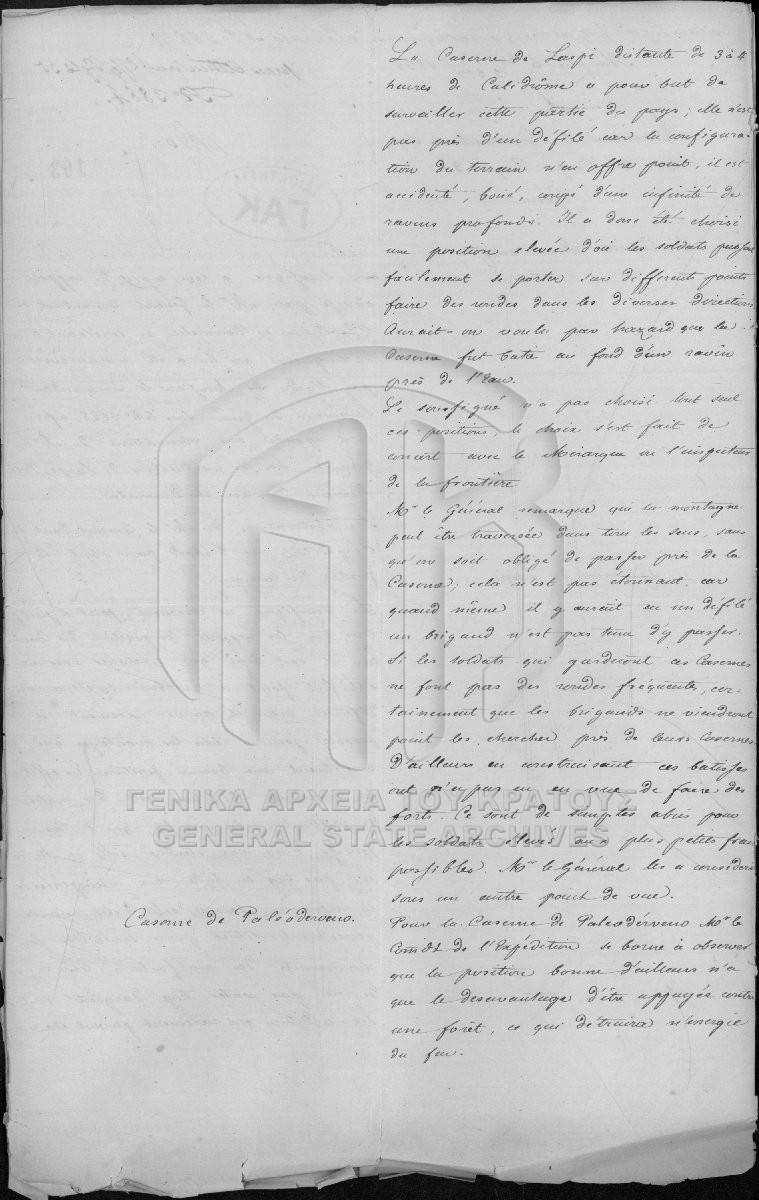 La Caserne de Laspi distante de 3 à 4
heures de Calidrôme a pour but de
surveiller cette partie du pays; elle n'est
pas près d'un défilé car la configura-
tion du terrain n'en offre point, il est
accidenté, boisé, coupé d'une infinité de
ravins profonds. Il a donc été choisi
une position elevée d'où les soldats puissent
facilement se porter sur differents points
faire des rondes dans les diverses directions
Aurait-on voulu par hazard que la
Caserne fut batie au fond d'un ravin
près de l'Eau.
Le soussigné n'a pas choisi tout seul
ces positions, le choix s'est fait de
concert avec le Mirarque ou l'inspecteur
de la frontière
Mr le Général remarque qui la montagne
peut être traversée dans tous les sens, sans
qu'on soit obligé de passer près de la
Caserne; cela n'est pas étonnant car
quand même il y aurait eu un défilé
un brigand n'est pas tenu d'y passer.
Si les soldats qui garderont ces Casernes
ne font pas des rondes fréquentes, cer-
tainement que les brigands ne viendront
point les chercher près de leurs Casernes.
D'ailleurs en construisant ces batisses
ont n'a pas eu en vue de faire des
forts. Ce sont de simples abris pour
les soldats élevés aux plus petits frais
possibles. Mr le Général les a considéré
sous un autre point de vue.
Caserne de Paléoderveno.
Pour la Caserne de Paleodérveno Mr le
Comdt de l'Expédition se borne à observer
que la position bonne d'ailleurs n'a
que le desavantage d'être appuyée contre
une forêt, ce qui détruira l'energie
du feu.
ΓΕΝΙΚΑ ΑΡΧΕΙΑ ΤΟΥ ΚΡΑΤΟΥΣ
GENERAL STATE ARCHIVES